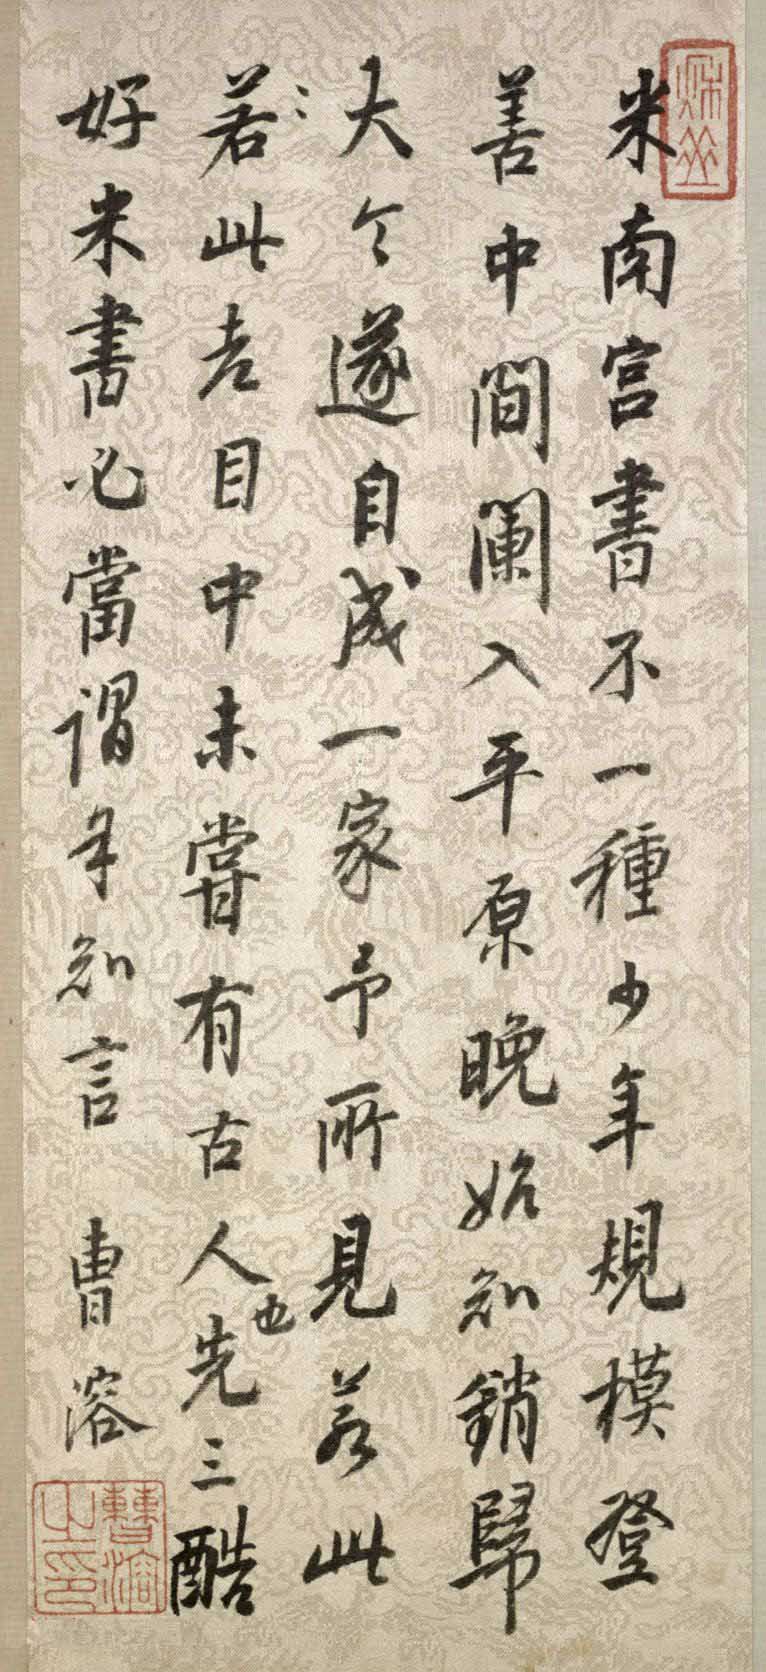 米南宫書不一種少年規模登
善中間闌入平原晚始知銷歸
大令遂自成一家予所見若此
若此者目中未嘗有古人也先三酷
好米書必當謂年知言 曹溶
曹溶之印